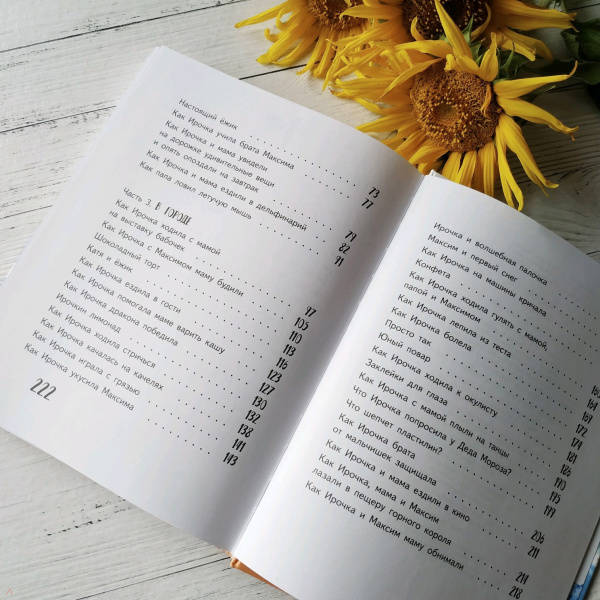 Настоящий ёжик 73
Как Ирочка учила брата Максима 77
Как Ирочка и мама увидели
на дорожке удивительные вещи
и опять опоздали на завтрак 79
Как Ирочка и мама ездили в дельфинарий 82
Как папа ловил летучую мышь 91
Часть 3. В ГОРОДЕ
Как Ирочка ходила с мамой
на выставку бабочек 97
Как Ирочка с Максимом маму будили 103
Шоколадный торт 110
Катя и ёжик 113
Как Ирочка ездила в гости 116
Как Ирочка помогала маме варить кашу 123
Как Ирочка дракона победила 127
Ирочкин лимонад 130
Как Ирочка ходила стричься 132
Как Ирочка качалась на качелях 138
Как Ирочка играла с грязью 141
Как Ирочка укусила Максима 143
222
Ирочка и волшебная палочка
Максим и первый снег
Как Ирочка на машины кричала
Конфета
Как Ирочка ходила гулять с мамой,
папой и Максимом
Как Ирочка лепила из теста 164
Как Ирочка болела 169
Просто так 172
Юный повар 174
Как Ирочка ходила к окулисту 181
Заклейки для глаза 186
Как Ирочка с мамой плыли на танцы 190
Что Ирочка попросила у Деда Мороза? 195
Что шепчет пластилин? 197
Как Ирочка брата
от мальчишек защищала 206
Как Ирочка и мама ездили в кино 211
Как Ирочка, мама и Максим
лазали в пещеру горного короля 214
Как Ирочка и Максим маму обнимали 218